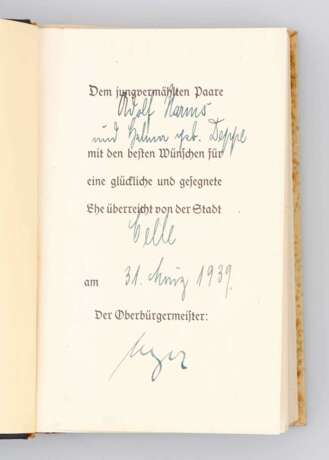 Dem jungvermählten Paare
Adolf Harms
und Helma geb. Deppe
mit den besten Wünschen für
eine glückliche und gesegnete
Ehe überreicht von der Stadt
Celle
am 31. März 1939.
Der Oberbürgermeister: